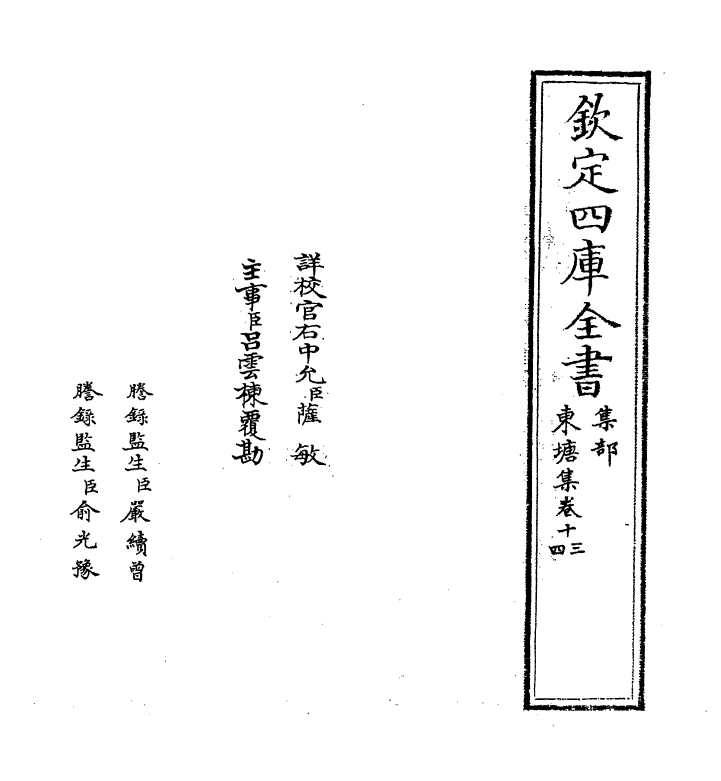 欽定四庫全書
集部
東塘集卷十三四
詳校官右中允臣薩敏
主事臣呂雲棟覆勘
謄錄監生臣嚴續曾
謄錄監生臣俞光豫